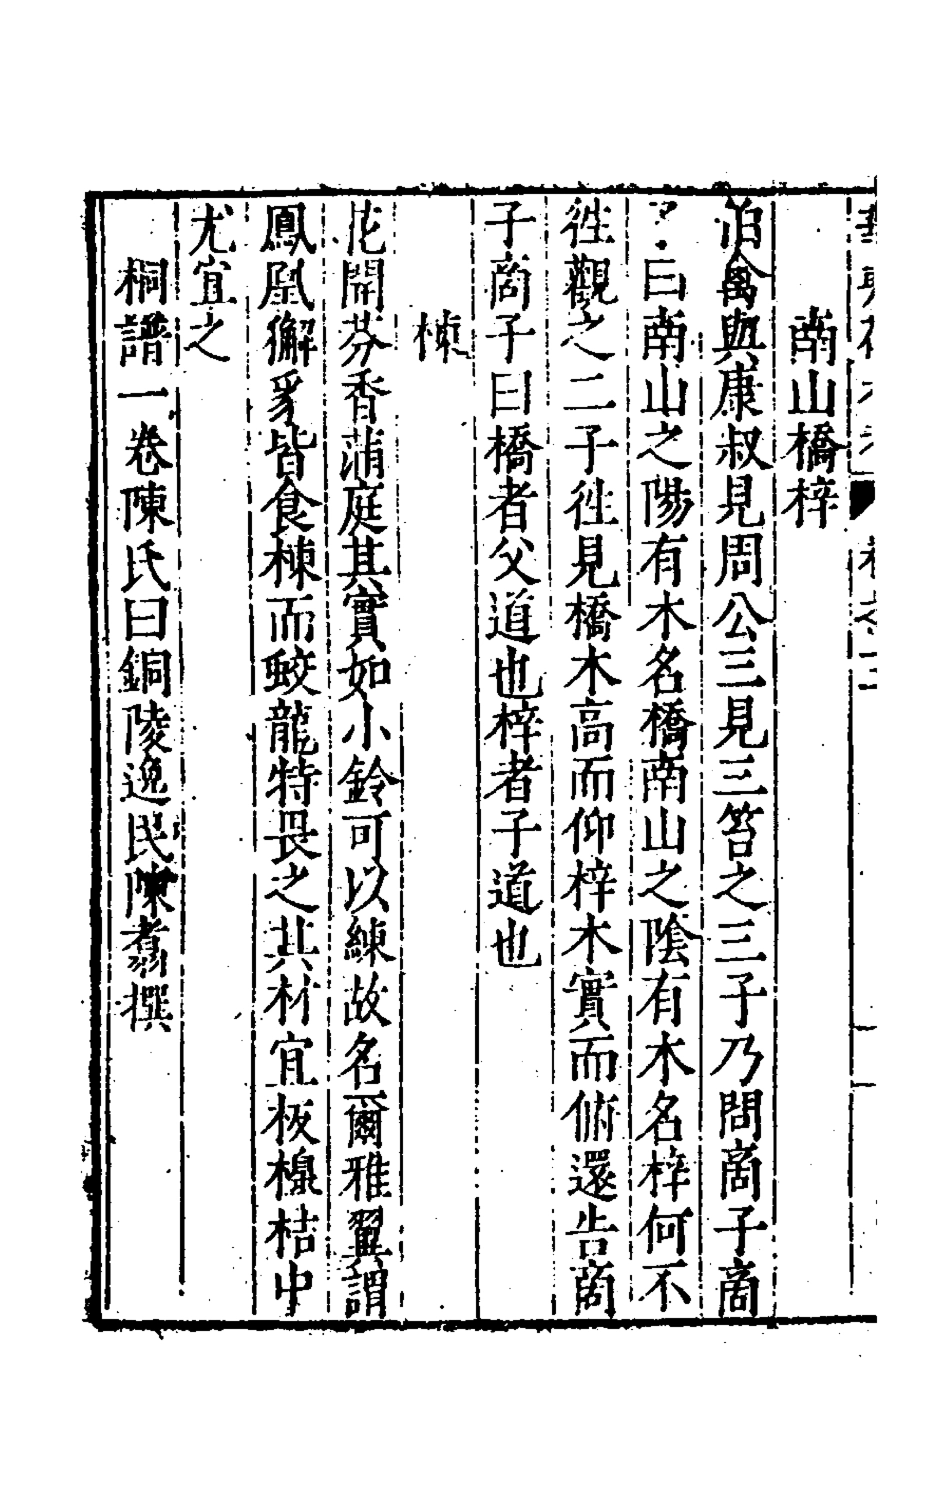 南山橋梓
伯禽與康叔見周公三見三笞之三子乃問商子商
曰南山之陽有木名橋南山之陰有木名梓何不
徃觀之二子徃見橋木高而仰梓木實而俯還告商
子商子曰橋者父道也梓者子道也
楝
花開芬香滿庭其實如小鈴可以練故名爾雅翼謂
鳳凰獬豸皆食楝而蛟龍特畏之其材宜板榥桔中
尤宜之
桐譜一卷陳氏曰銅陵逸民陳翥撰